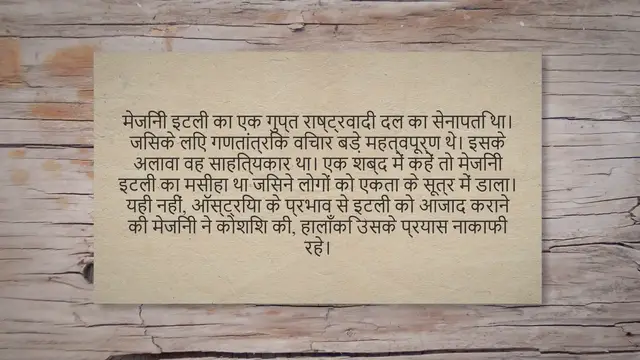 मेजिनी इटली का एक गुप्त राष्ट्रवादी दल का सेनापति था।
जिसके लिए गणतांत्रिक विचार बड़े महत्वपूर्ण थे। इसके
अलावा वह साहित्यकार था। एक शब्द में कहें तो मेजिनी
इटली का मसीहा था जिसने लोगों को एकता के सूत्र में डाला।
यही नहीं, ऑस्ट्रिया के प्रभाव से इटली को आजाद कराने
की मेजिनी ने कोशिश की, हालाँकि उसके प्रयास नाकाफी
रहे।